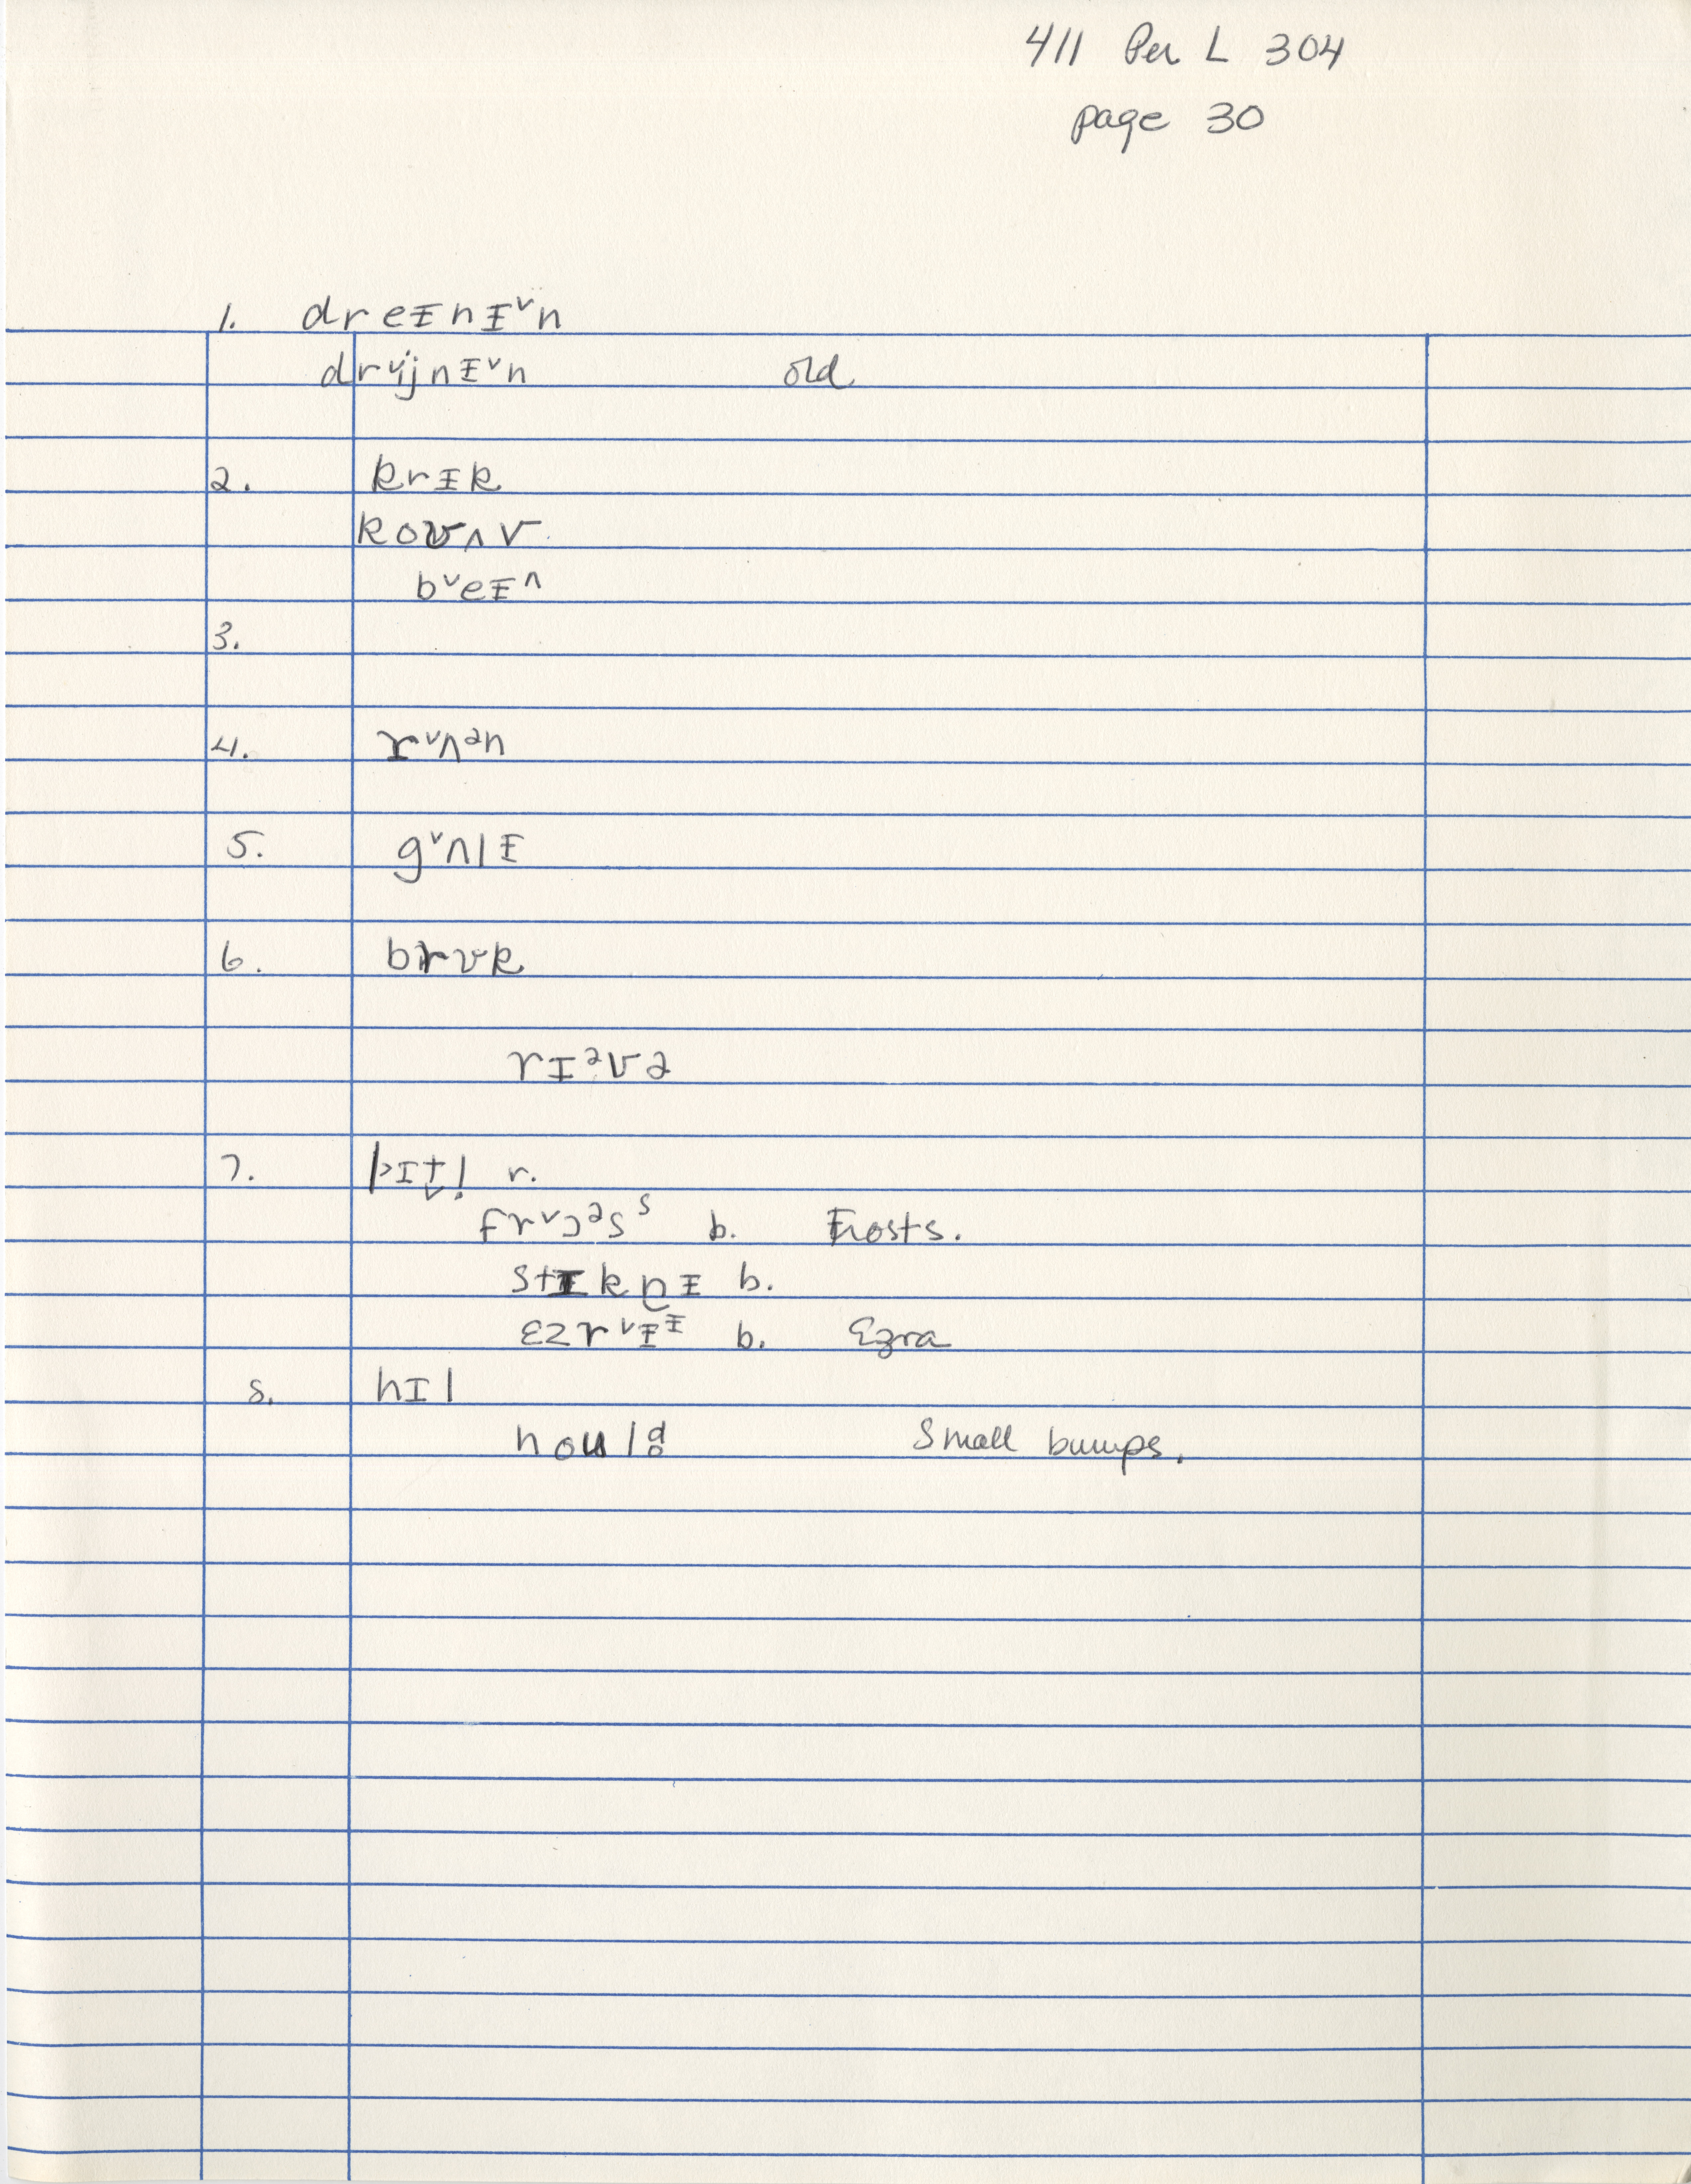 411 Per L 304
page 30
1. dreᵻnᵻˇn
drˇijnᵻˇn old
2. krᵻk
koʊʌv
bˇeᵻⁿ
3.
4. rˇʌᵊn
5. gˇʌlᵻ
6. brʊk
rɪᵊvə
7. pɪt̬! r.
frˇɔᵊsˢ b. Frosts.
stɪknᵻ b.
ɛzrˇᵻᵻ b. Ezra
8. hɪl
Small bumps.